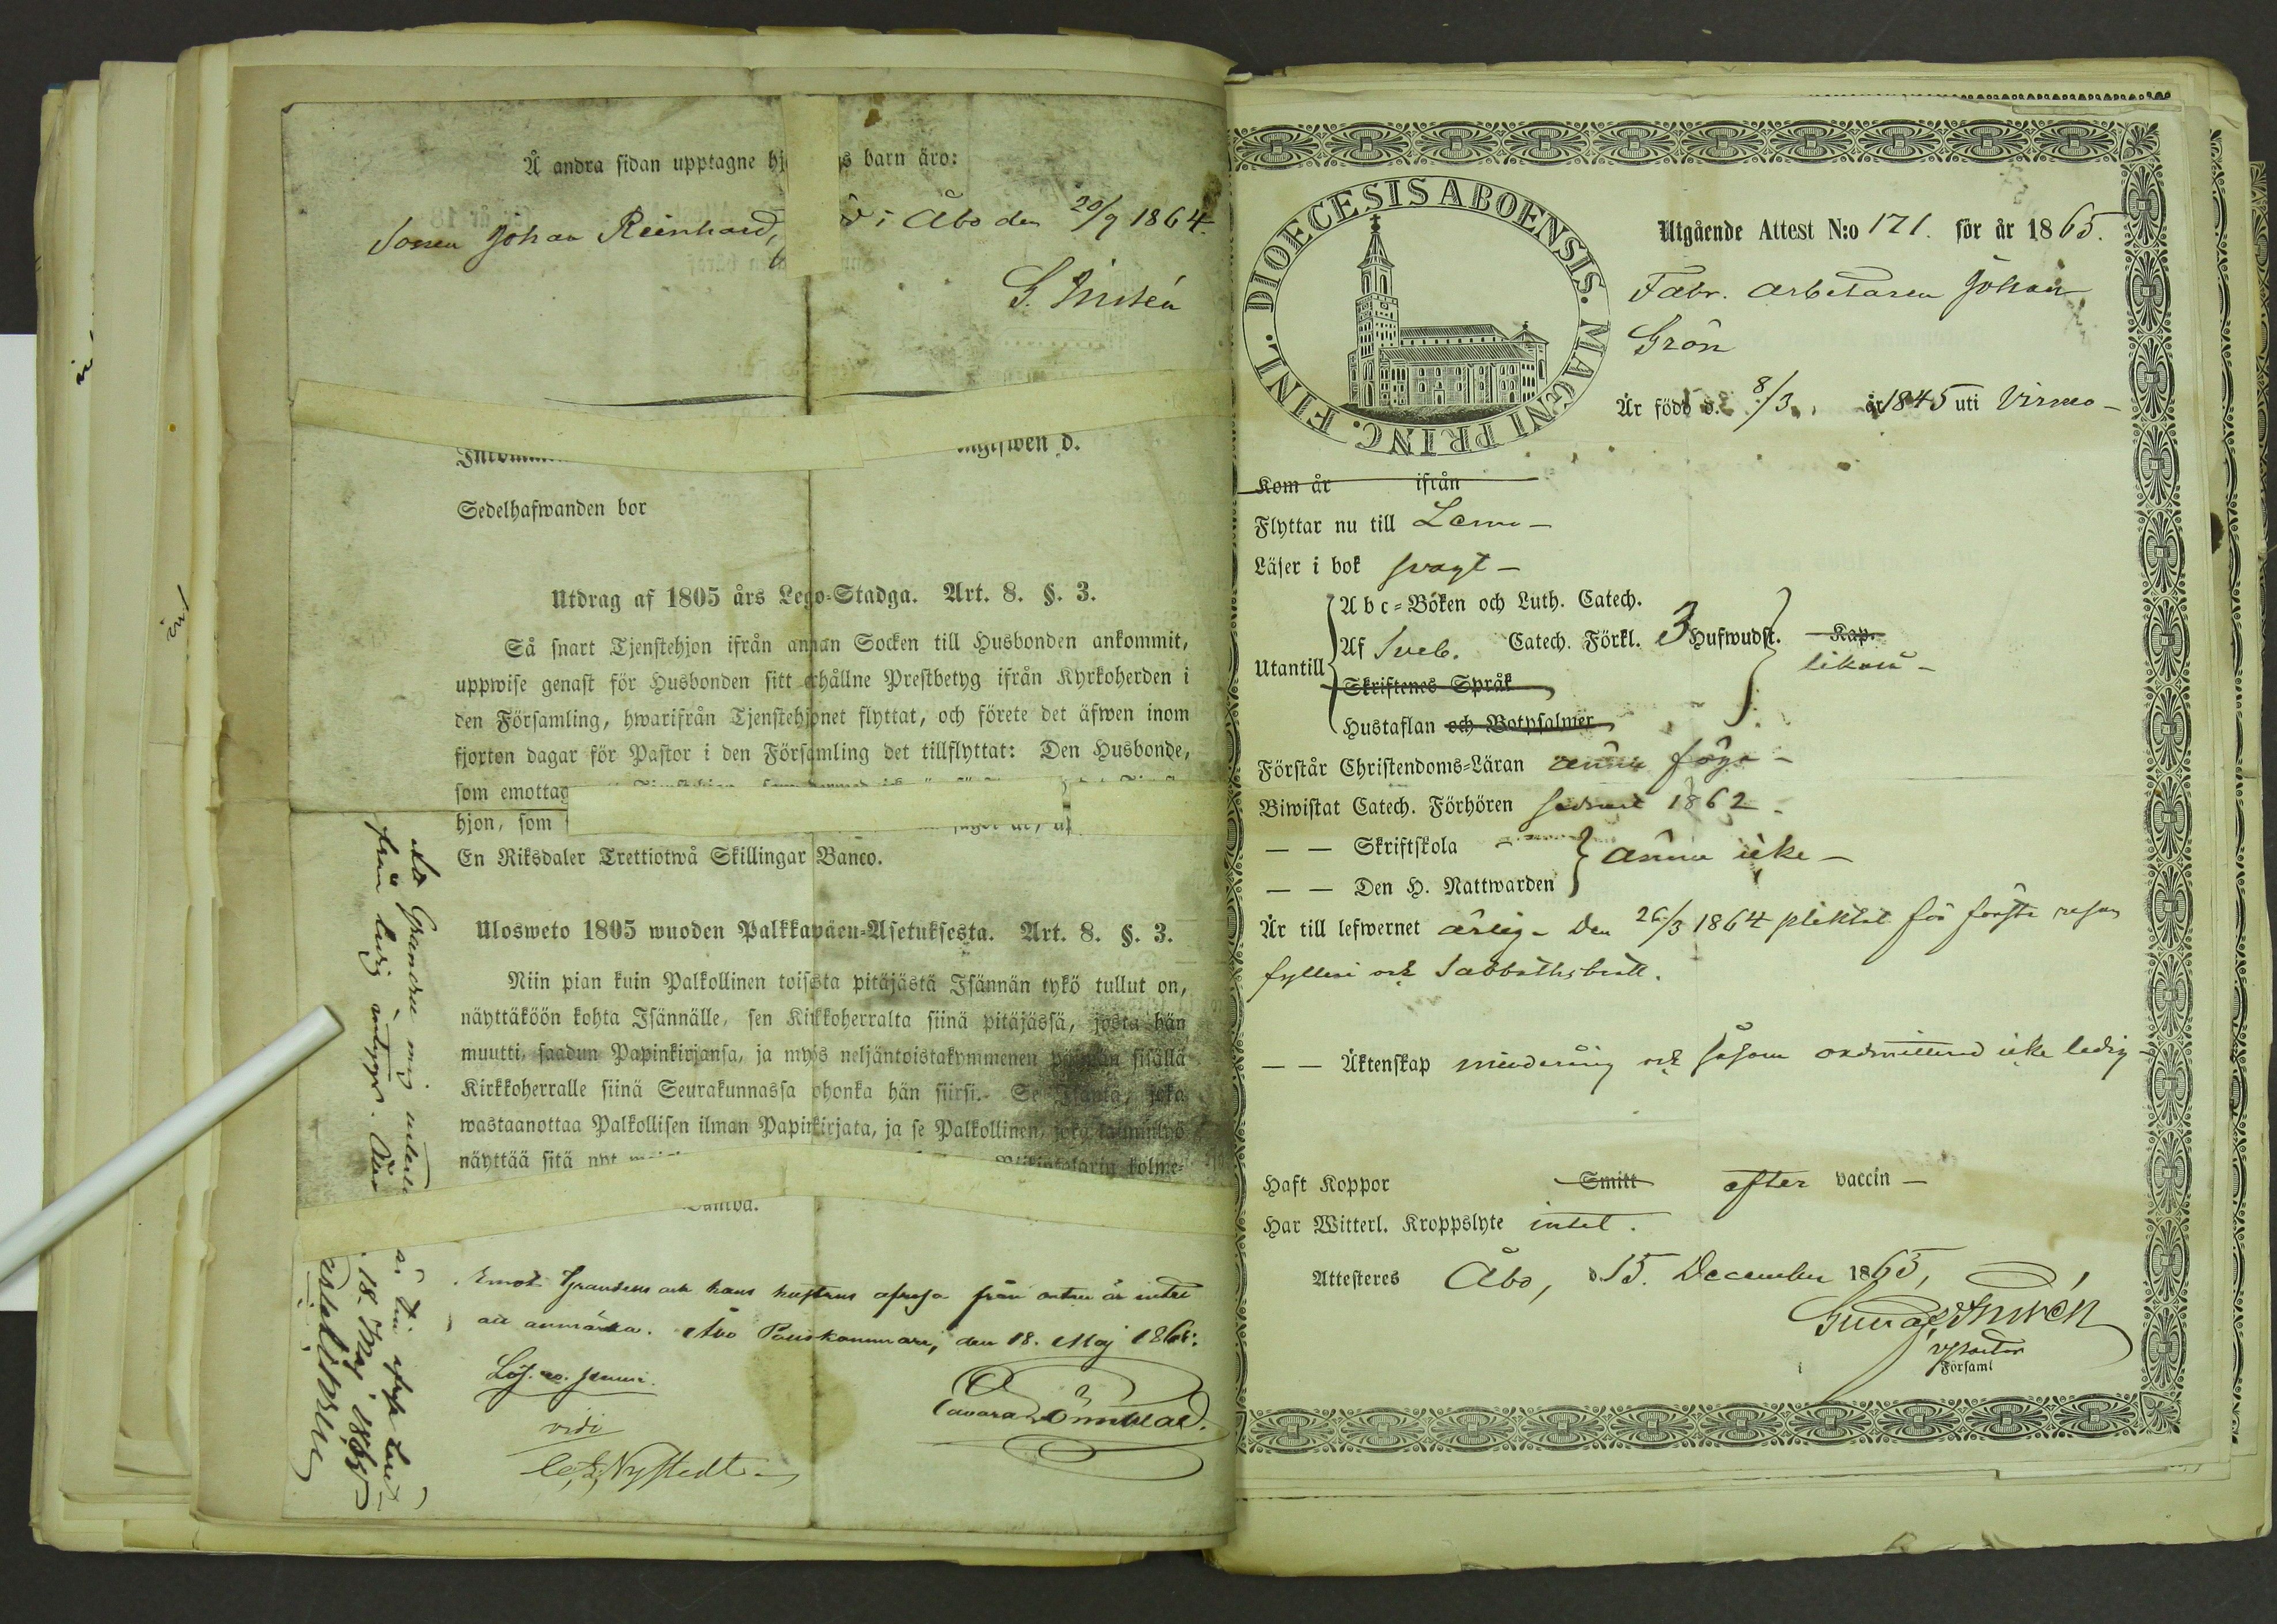 Å andra sidan upptagne hj s barn äro:
Sonen Johan Reinhard, i Åbo den 20/9 1864.
Sedelhafwanden bor
Utdrag af 1805 års Lego-Stadga. Art. 8. §. 3.
Så snart Tjenstehjon ifrån annan Socken till Husbonden ankommit,
uppwise genast för Husbonden sitt erhållne Prestbetyg ifrån Kyrkoherden i
den Församling, hwarifrån Tjenstehjonet flyttat, och förete det äfwen inom
fjorton dagar för Pastor i den Församling det tillflyttat: Den Husbonde,
som emottag
hjon, som
En Riksdaler Trettiotwå Skillingar Banco.
Ulosweto 1805 wuoden Palkkawäen-Asetuksesta. Art. 8. §. 3.
Niin pian kuin Palkollinen toisesta pitäjästä Isännän tykö tullut on,
näyttäköön kohta Isännälle, sen Kirkkoherralta siinä pitäjässä, josta hän
muutti, saadun Papinkirjansa, ja myös neljäntoistakymmenen päiwän sisällä
Kirkkoherralle siinä Seurakunnassa johonka hän siirsi. Se Isäntä, joka
wastaanottaa Palkollisen ilman Papinkirjata, ja se Palkollinen, joka
näyttää sitä nyt kolme-
Emot Grandens och hans hustrus afresa från orten är intet
att anmärka. Åbo Poliskammare, den 18. Maj 1865.
vidi
C. E. Nystedt
18. Maj 1865
DIOECESIS ABOENSIS. MAGNI PRINC. FINL.
Utgående Attest N:o 171. för år 1865.
Fabr. arbetaren Johan
Grön
Är född d. 8/3 år 1845 uti Virmo -
Kom år ifrån
Flyttar nu till Lemo -
Läser i bok svagt -
Utantill
Abc-Boken och Luth. Catech.
Af Sveb. Catech. Förkl. 3 Hufwudst. Kap.
likaså -
Skriftenes Språk
Hustaflan och Botpsalmer
Förstår Christendoms-Läran ännu föga -
Biwistat Catech. Förhören sednast 1862 -
— — Skriftskola
ännu icke -
— — Den H. Nattwarden
Är till lefwernet ärlig - Den 26/3 1864 pliktat för första resan
fylleri och Sabbathsbrott.
— — Äktenskap minderårig och såsom oadmitterad icke ledig -
Haft Koppor Smitt efter vaccin -
Har Witterl. Kroppslyte intet.
Attesteres Åbo, d. 15. December 1865,
v. pastor
Församl